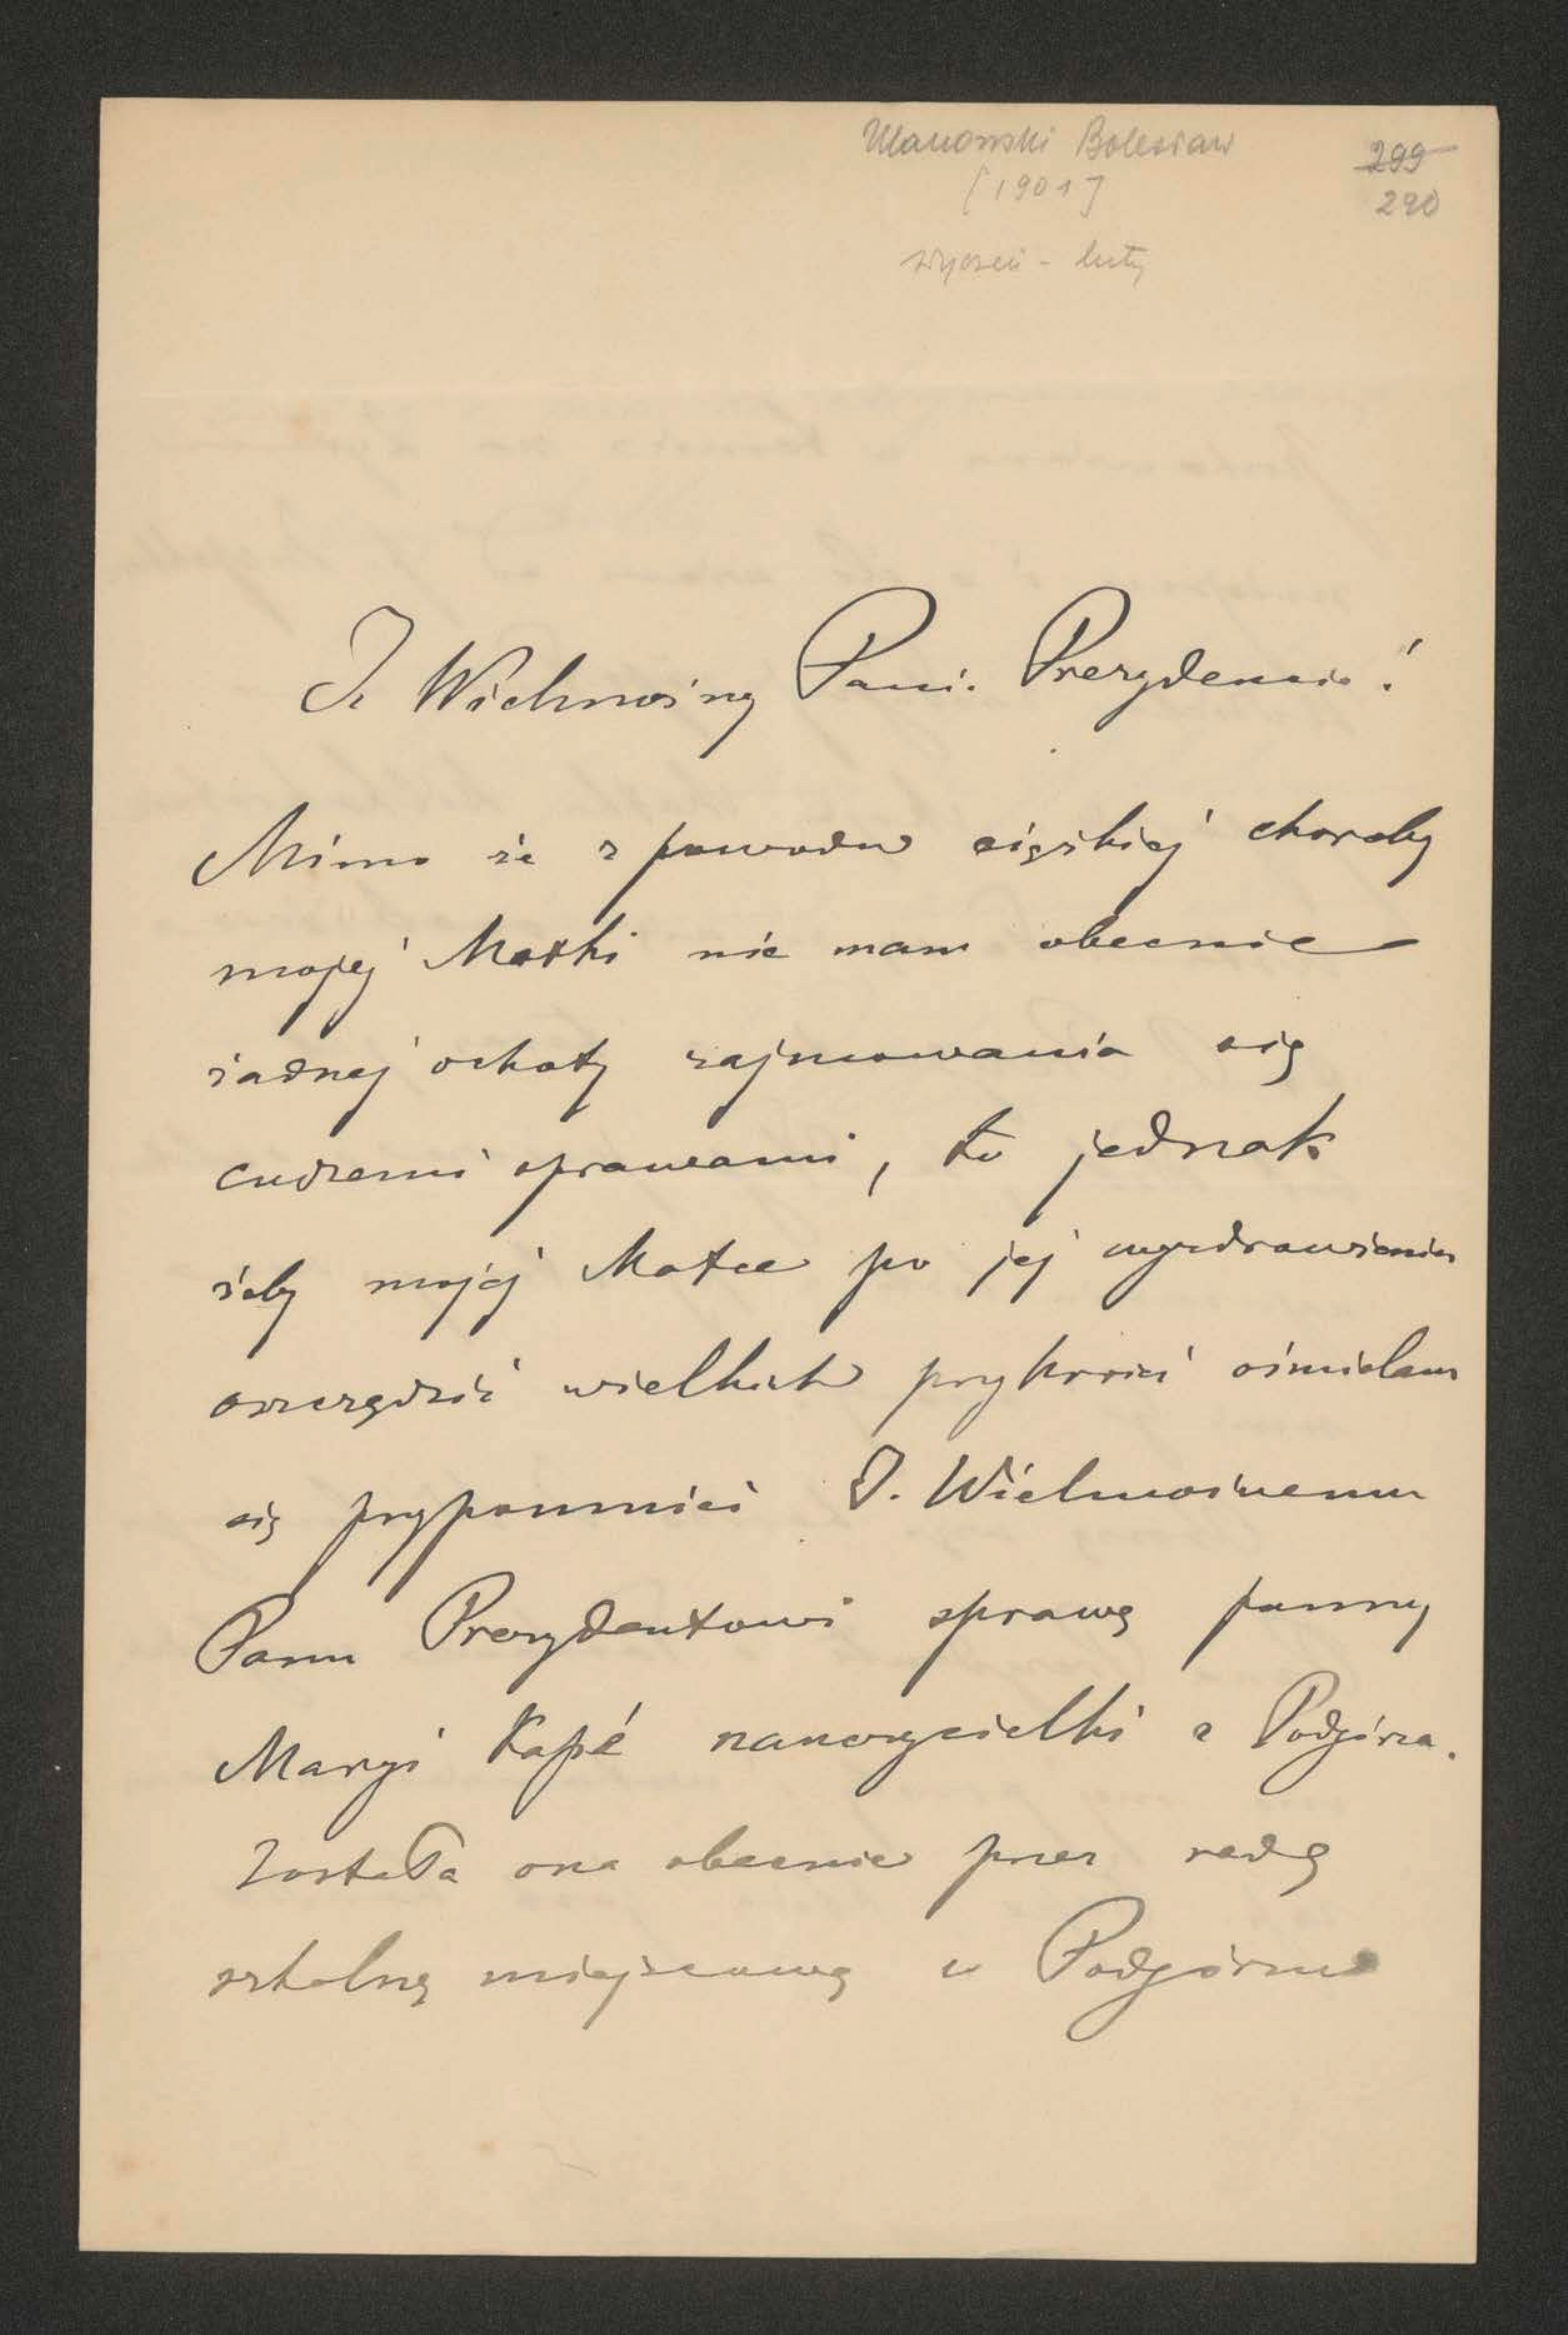 Ulanowski Bolesław
[1901]
299
290
styczeń - luty
J. Wielmożny Panie Prezydencie!
Mimo że z powodu ciężkiej choroby
mojej Matki nie mam obecnie
żadnej ochoty zajmowania się
cudzemi sprawami, to jednak
żeby mojej Matce po jej wyzdrowieniu
oszczędzić wielkich przykrości ośmielam
się przypomnieć J. Wielmożnemu
Panu Prezydentowi sprawę panny
Maryi Kapé nauczycielki z Podgórza.
Została ona obecnie przez radę
szkolną miejscową w Podgórzu